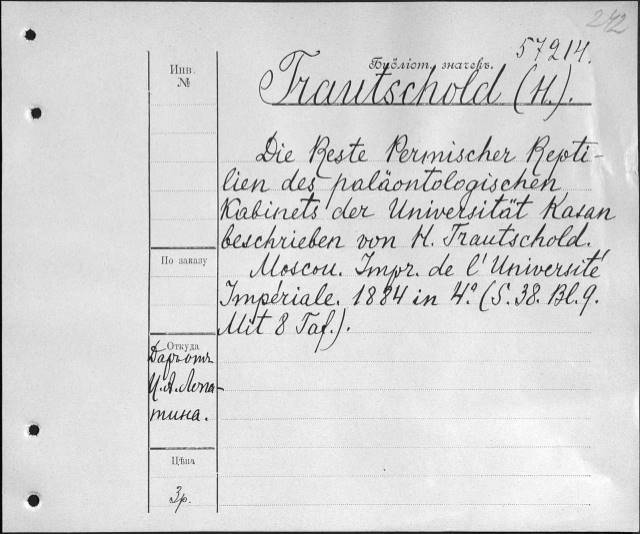 242
57214.
Инв.
№
Библіот. значекъ.
Trautschold (H.).
Die Reste Permischer Repti-
lien des paläontologischen
Kabinets der Universität Kasan
beschrieben von H. Trautschold.
Moscou. Impr. de l'Université
Impériale. 1884 in 4º. (S. 38. Bl. 9.
Mit 8 Taf.).
По заказу
Откуда
Даръ отъ
И. А. Лопа-
тина.
Цѣна
3р.